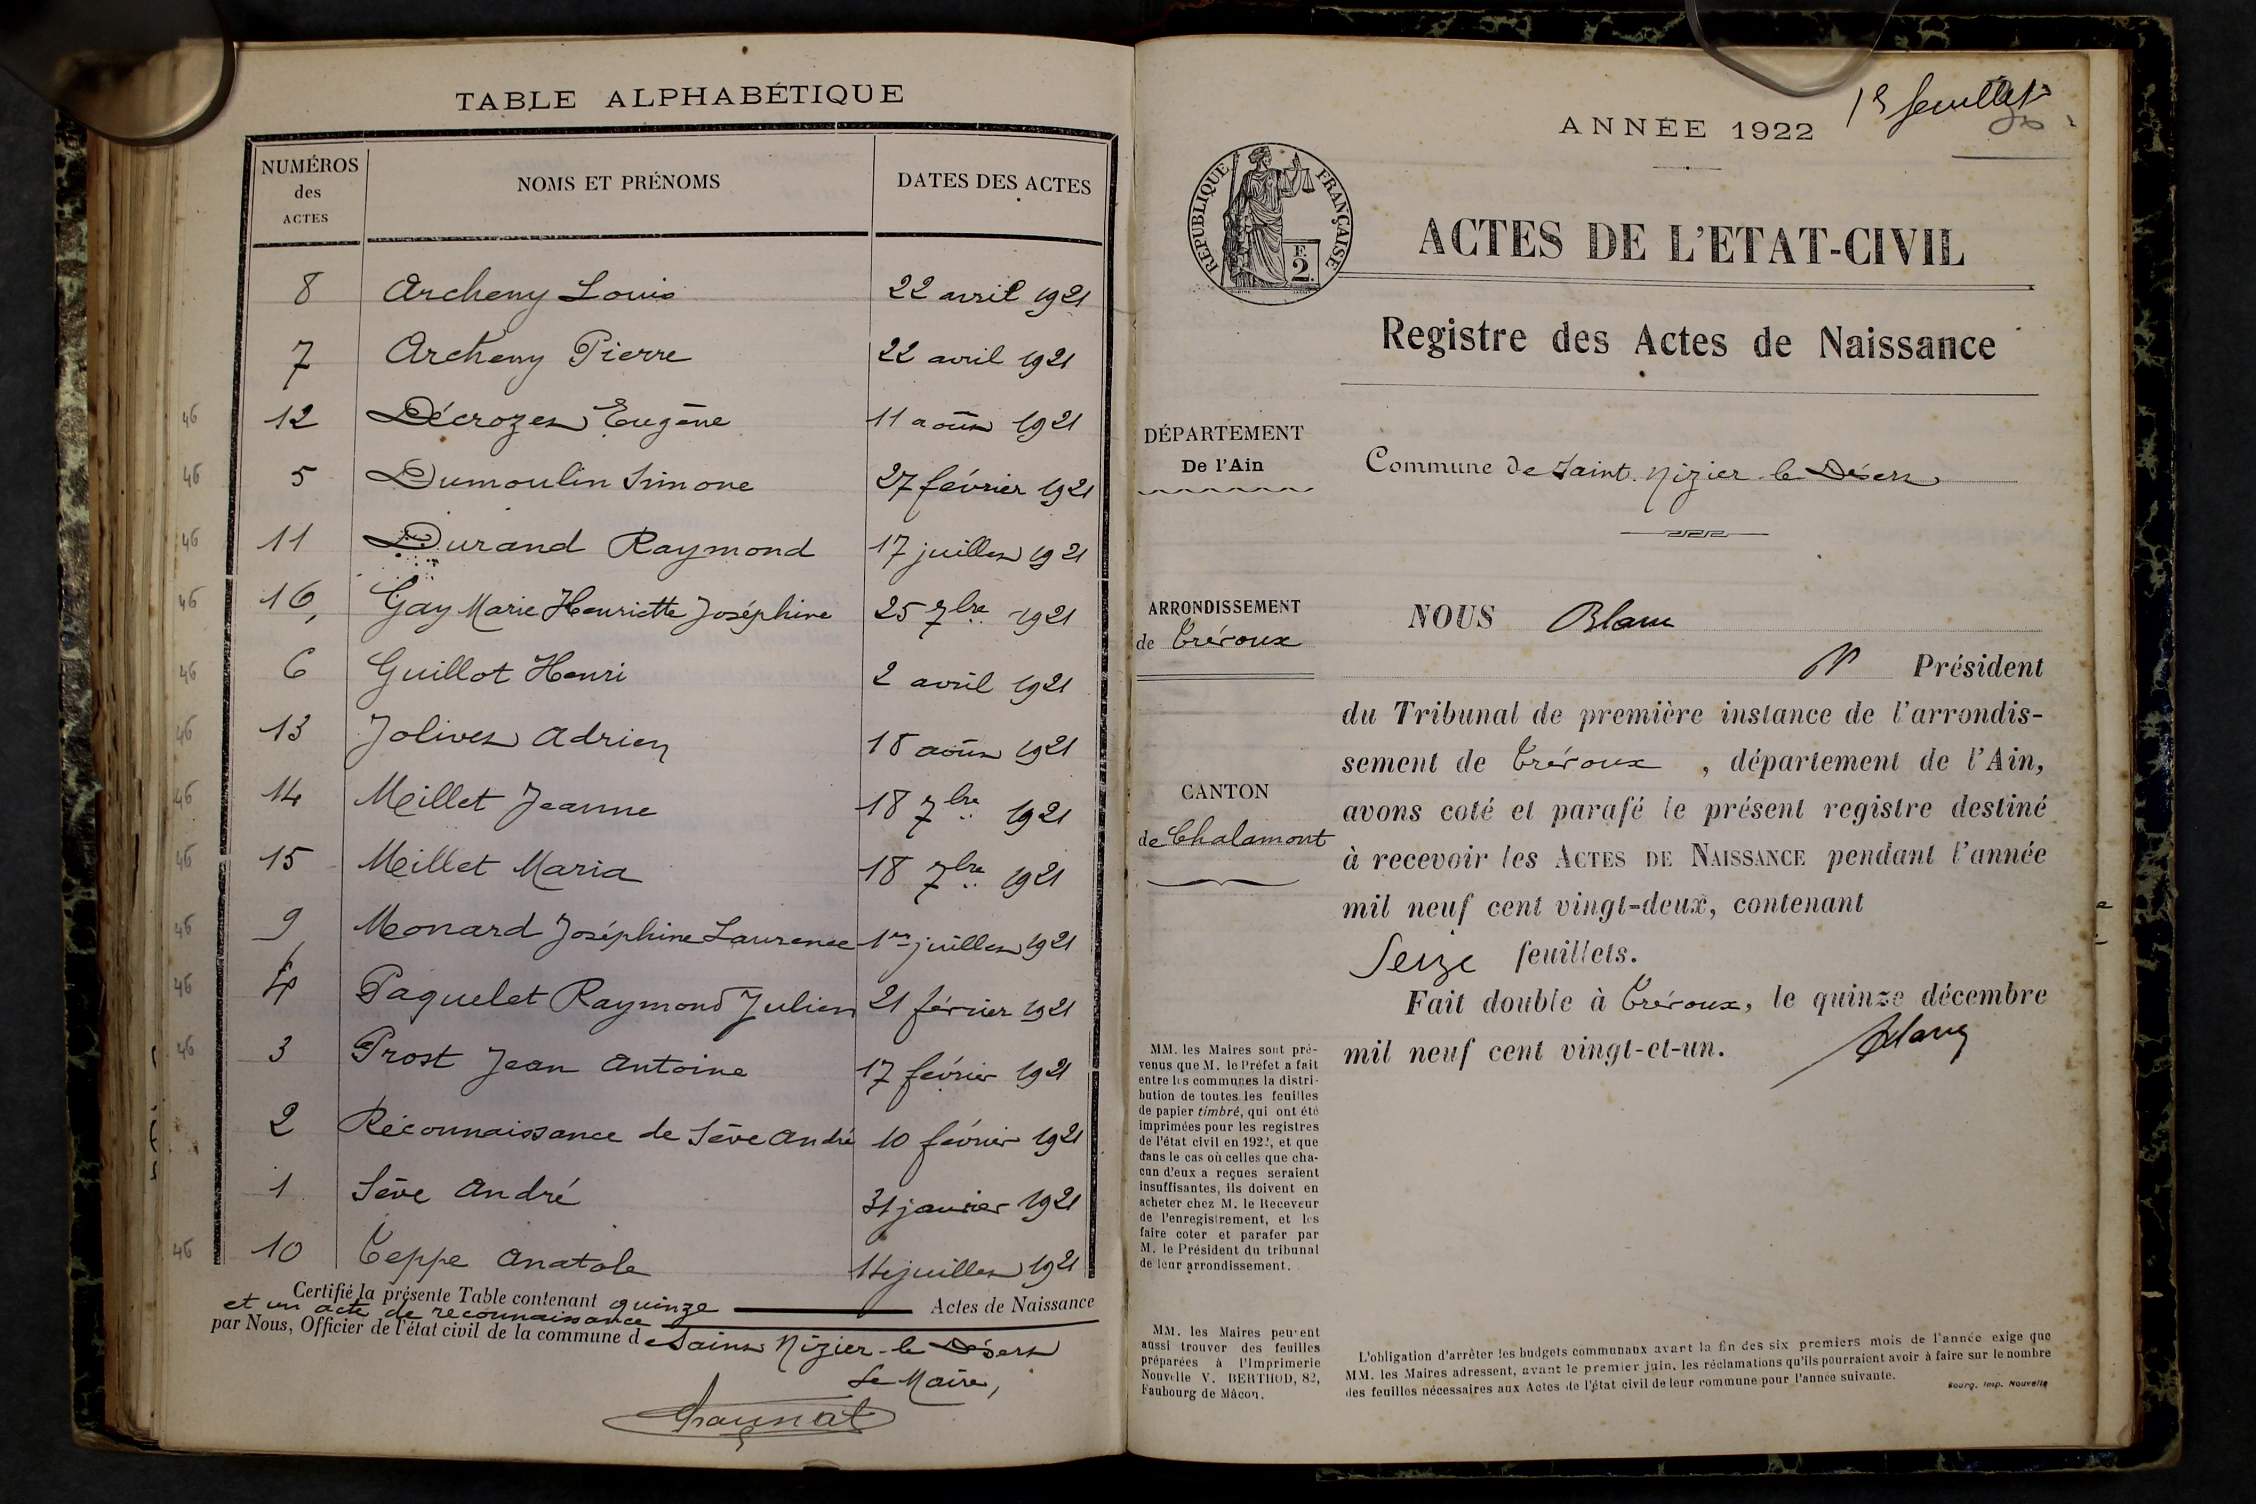 TABLE ALPHABÉTIQUE
NUMÉROS des ACTES NOMS ET PRÉNOMS DATES DES ACTES
8 Archeny Louis 22 avril 1921
7 Archeny Pierre 22 avril 1921
46 12 Décrozes Eugène 11 août 1921
46 5 Dumoulin Simone 27 février 1921
46 11 Durand Raymond 17 juillet 1921
46 16 Gay Marie Henriette Joséphine 25 7bre 1921
46 6 Guillot Henri 2 avril 1921
46 13 Jolivet Adrien 18 août 1921
46 14 Meillet Jeanne 18 7bre 1921
46 15 Meillet Maria 18 7bre 1921
46 9 Monard Joséphine Laurence 1er juillet 1921
46 4 Paquelet Raymond Julien 21 février 1921
46 3 Prost Jean Antoine 17 février 1921
2 Réconnaissance de Sève André 10 février 1921
1 Sève André 31 janvier 1921
46 10 Teppe Anatole 14 juillet 1921
Certifié la présente Table contenant quinze Actes de Naissance
et un acte de reconnaissance
par Nous, Officier de l'état civil de la commune de Saint Nizier-le Désert
Le Maire,
1er feuillet
ANNÉE 1922
RÉPUBLIQUE FRANÇAISE
F.
2.
ACTES DE L'ETAT-CIVIL
Registre des Actes de Naissance
DÉPARTEMENT
De l'Ain
Commune de Saint. Nizier-le Désert
ARRONDISSEMENT
de Trévoux
NOUS Blanc
Président
du Tribunal de première instance de l'arrondis-
sement de Trévoux, département de l'Ain,
CANTON
de Chalamont
avons coté et parafé le présent registre destiné
à recevoir les ACTES DE NAISSANCE pendant l'année
mil neuf cent vingt-deux, contenant
Seize feuillets.
Fait double à Trévoux, le quinze décembre
mil neuf cent vingt-et-un.
Blanc
MM. les Maires sont pré-
venus que M. le Préfet a fait
entre les communes la distri-
bution de toutes les feuilles
de papier timbré, qui ont été
imprimées pour les registres
de l'état civil en 1922, et que
dans le cas où celles que cha-
cun d'eux a reçues seraient
insuffisantes, ils doivent en
acheter chez M. le Receveur
de l'enregistrement, et les
faire coter et parafer par
M. le Président du tribunal
de leur arrondissement.
MM. les Maires peuvent
aussi trouver des feuilles
préparées à l'Imprimerie
Nouvelle V. BERTHOD, 82,
Faubourg de Mâcon.
L'obligation d'arrêter les budgets communaux avant la fin des six premiers mois de l'année exige que
MM. les Maires adressent, avant le premier juin, les réclamations qu'ils pourraient avoir à faire sur le nombre
des feuilles nécessaires aux Actes de l'état civil de leur commune pour l'année suivante.
Bourg. Imp. Nouvelle